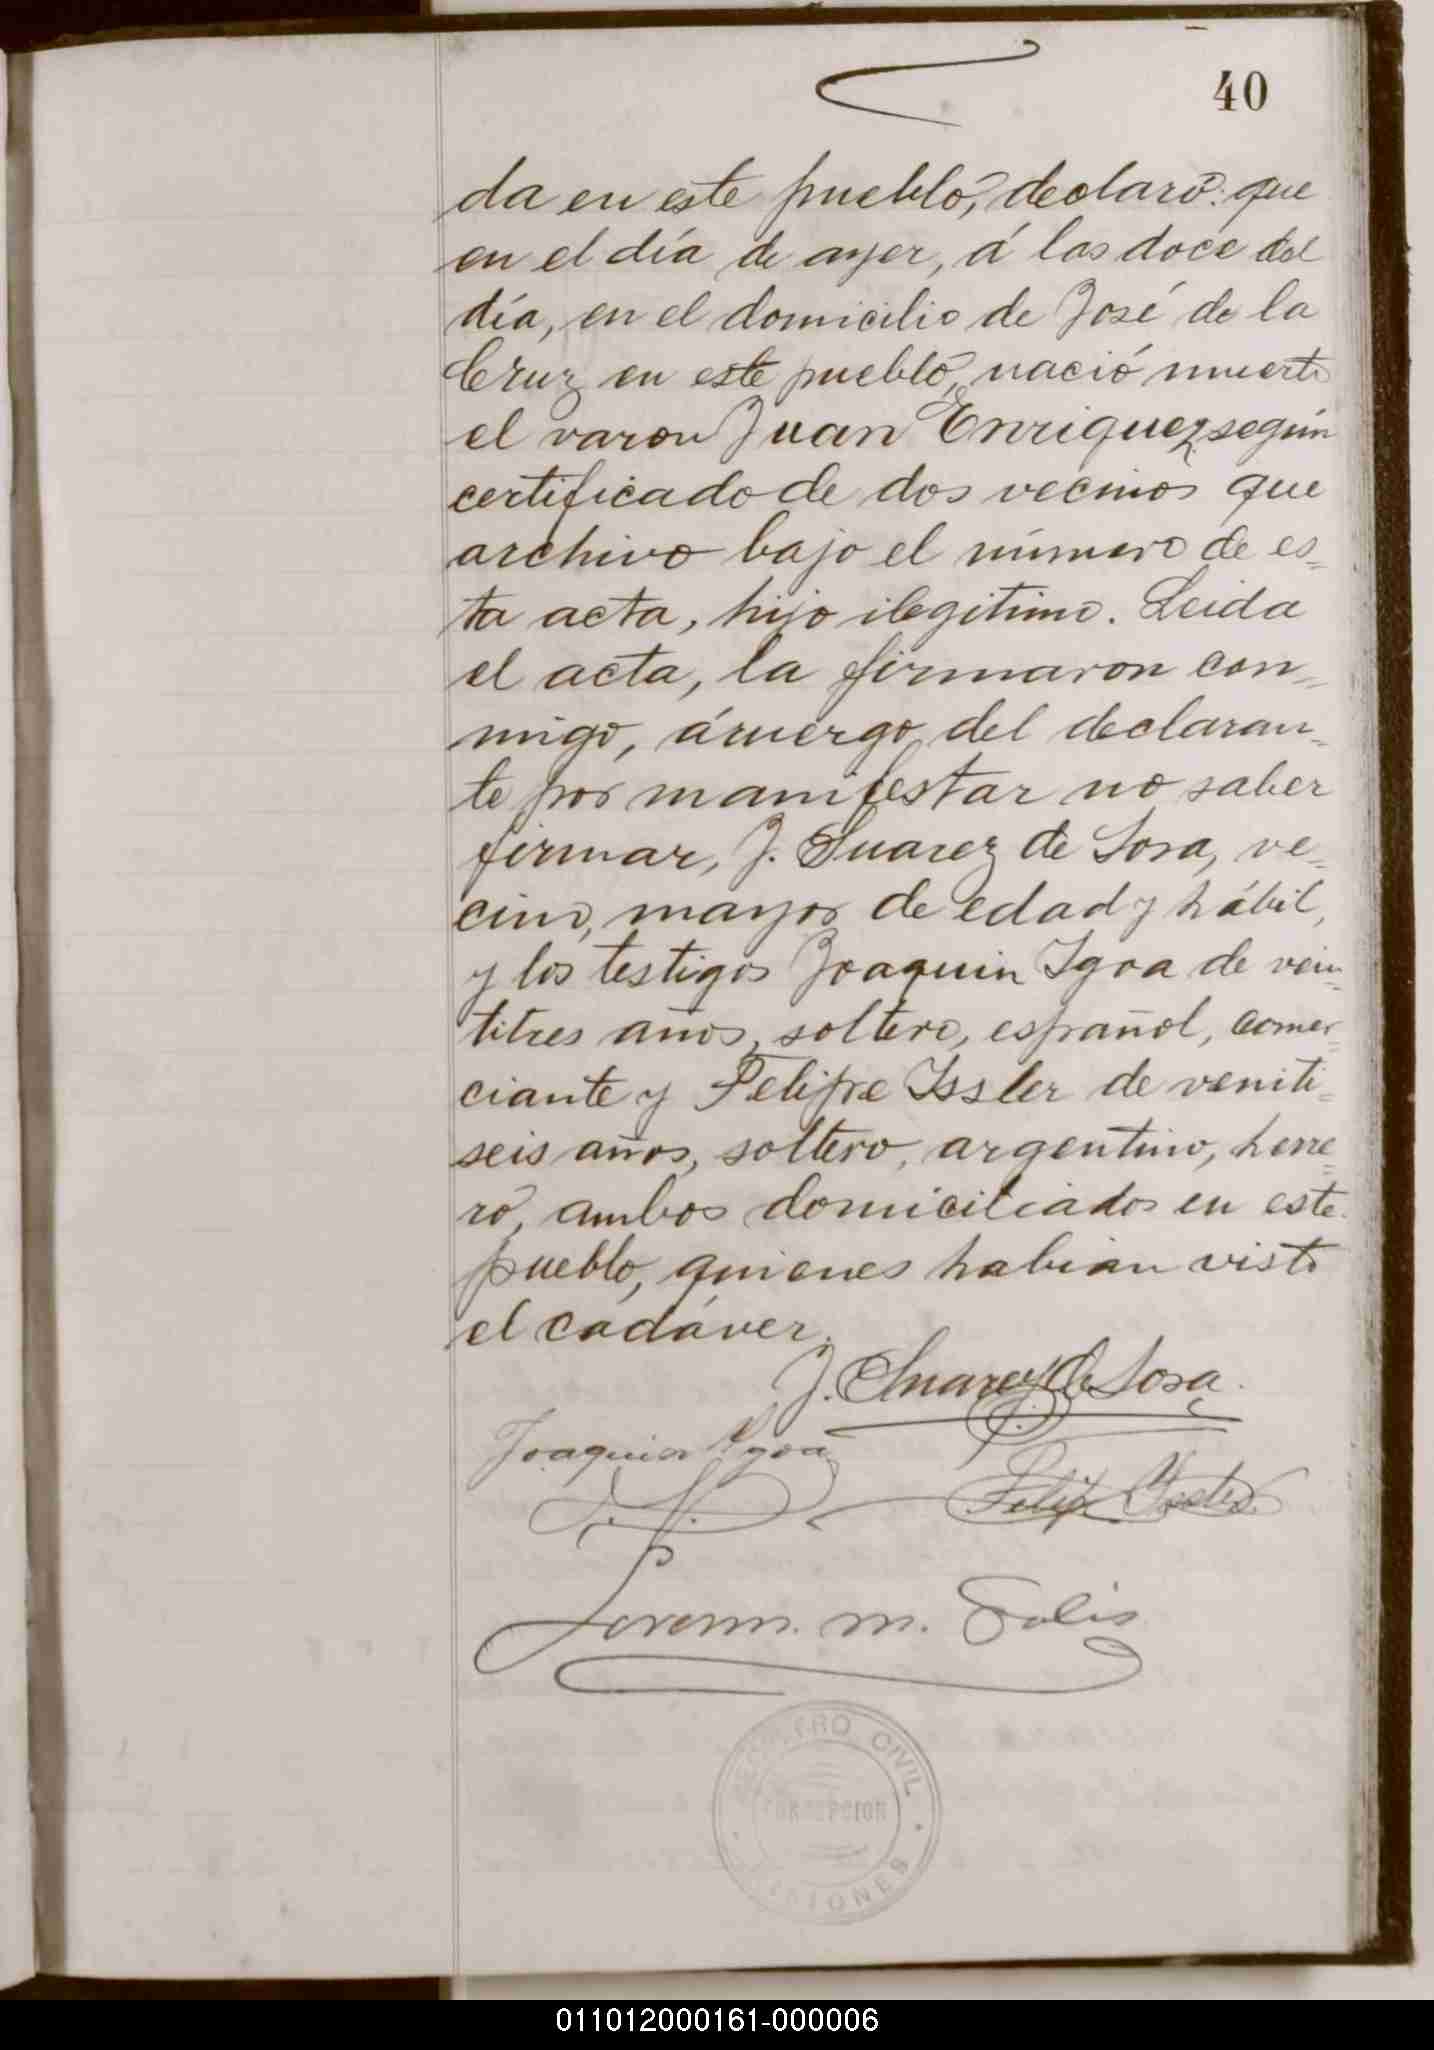 40
da en este pueblo, declaró: que
en el día de ayer, á las doce del
día, en el domicilio de José de la
Cruz en este pueblo, nació muerto
el varon Juan Enriquez, según
certificado de dos vecinos que
archivo bajo el número de es=
ta acta, hijo ilegitimo. Leida
el acta, la firmaron con=
migo, á ruergo del declaran=
te por manifestar no saber
firmar, J. Suarez de Sosa, ve=
cino, mayor de edad y hábil,
y los testigos Joaquin Igoa de vein=
titres años, soltero, español, comer=
ciante y Felipe Issler de veniti=
seis años, soltero, argentino, herre=
ro, ambos domiciliados en este
pueblo, quienes habian visto
el cadáver.
J. Suarez de Sosa.
Joaquin Igoa
Felip
m. Solis
REGISTRO CIVIL
CONCEPCION
MISIONES
011012000161-000006